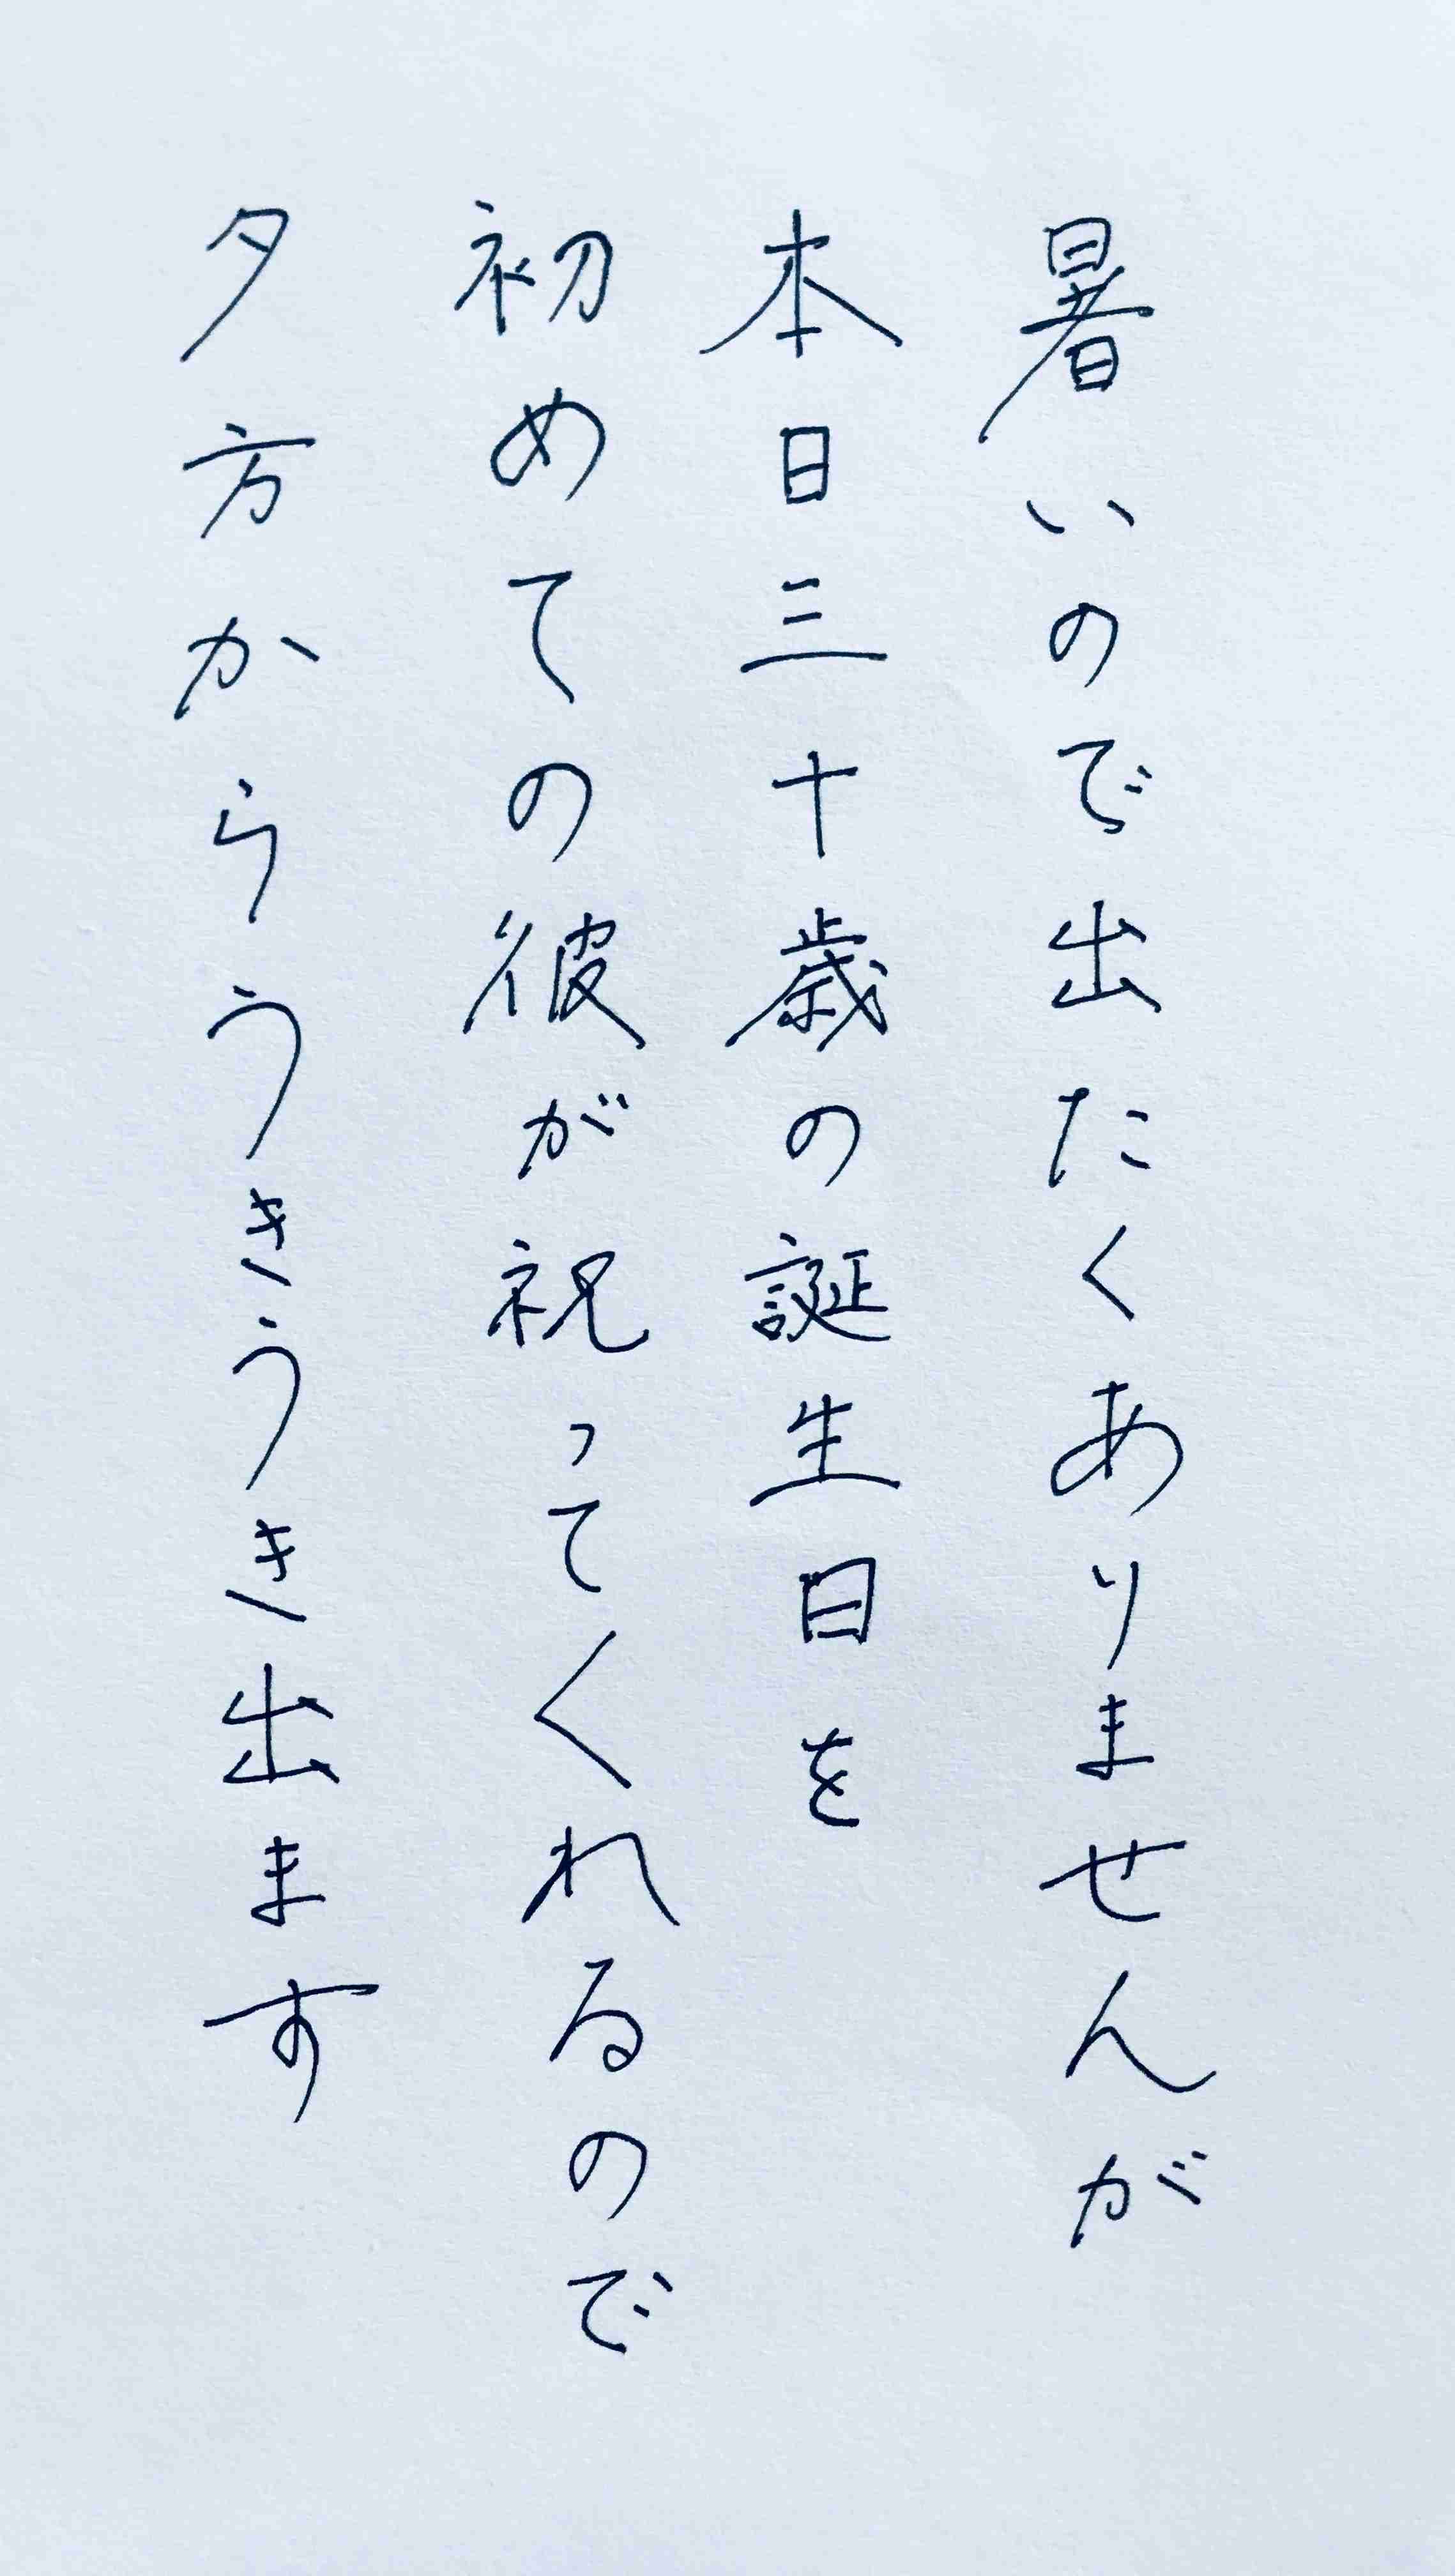 暑いので出たくありませんが
本日三十歳の誕生日を
初めての彼が祝ってくれるので
夕方からうきうき出ます